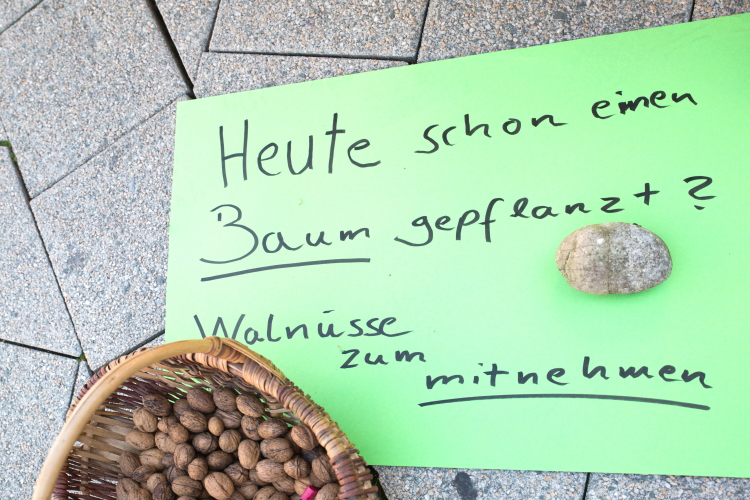 Heute schon einen
Baum gepflanzt?
Walnüsse
zum
mitnehmen